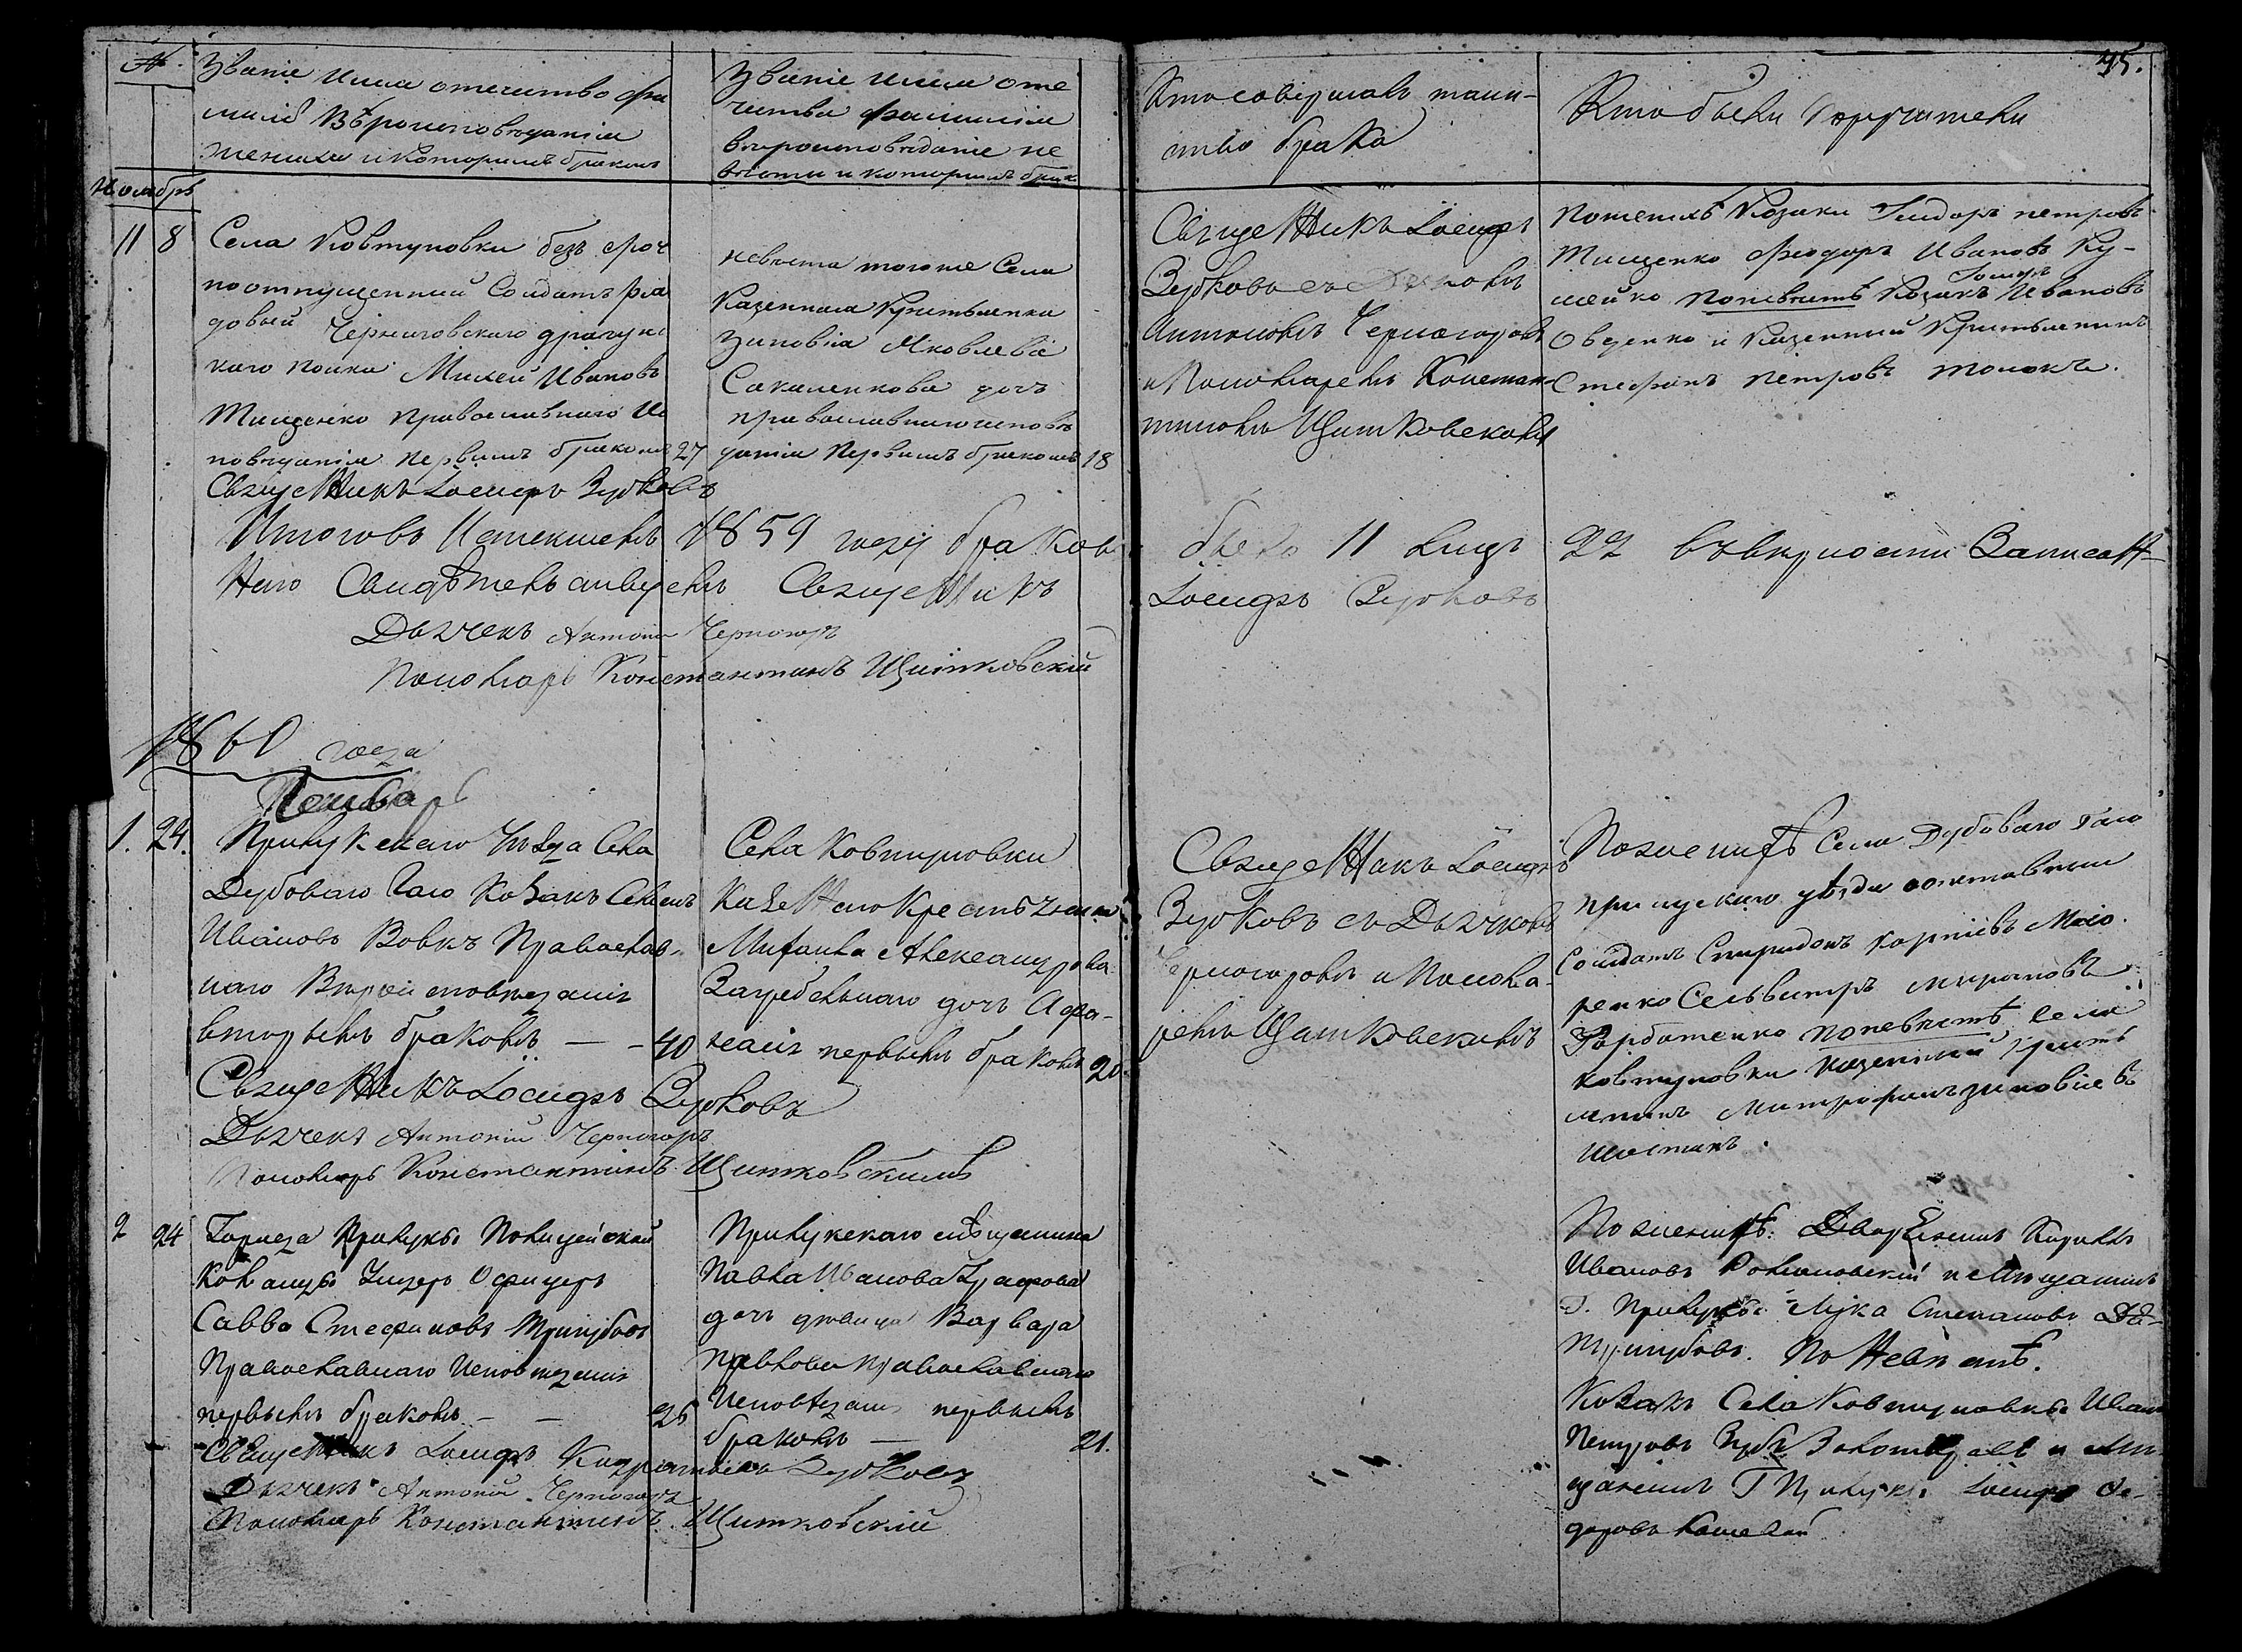 №.
Званіе имя отечитво фа
милія Вѣроисповѣданіе
жениха и которимъ бракомъ
Званіе имя оте
чества Фамилія
вѣроисповѣданіе не
вѣсти и которимъ брак
Кто совершалъ таин-
ство брака
Кто были поручители
95.
Ноябрь
11 8
Села Ковтуновки безъ сроч
но отпущенний Солдатъ Ря
довый Черниговского драгунс
каго полка Михей Ивановъ
Тищенко православнаго Ис
поведанія первимъ бракомъ 27
невѣста тогоже Села
Казенного Крестьянина
Зиновія Яковлева
Сакаленкова дочь
православнаго исповѣ
данія Первимъ бракомъ 18
Священникъ Іосифъ
Зубковъ съ
Антоніемъ Черногоромъ
и Пономаремъ Констан-
тиномъ Щитковскимъ
Поженихѣ Козаки петровъ
Тищенко Феодоръ Ивановъ Ку-
мейко Поневѣстѣ Козакъ Ивановъ
Овденко и Казенний Крестьянинъ
Стефанъ Петровъ Толока.
Священникъ Іосифъ Зубковъ
Итоговъ Истекшемъ 1859 году браковъ было 11 лицъ 22 въ вѣрности Записан-
наго Свидѣтельствуемъ Священникъ Іосифъ Зубковъ
Дьячекъ Антоній Черногоръ
Пономарь Константинъ Щитковскій
1860 года
Январь
1. 24.
Прилукскаго Уѣзда Села
Дубоваго Гаю Козакъ Семенъ
Ивановъ Вовкъ Православ-
наго Вѣроисповѣданія
вторымъ бракомъ — - 40
Села Ковтуновки
Казеннаго Крестьянина
Михаила Александрова
Загребельнаго дочь Афа-
насія первымъ бракомъ 20.
Священникъ Іосифъ
Зубковъ съ Дьячкомъ
Черногоромъ и Понома-
ремъ Щитковскимъ
Поженихѣ Села Дубоваго Гаю
прилуского уѣзда отставний
Солдатъ Спиридонъ Карпіевъ
Сельвестръ Мироновъ
Горбатенко поневѣстѣ села
ковтуновки казенний Кресть
янинъ Митрофанъ Зиновіевъ
Шостакъ.
Священникъ Іосифъ Зубковъ
Дьячекъ Антоній Черногоръ
Пономарь Константинъ Щитковскимъ
2 24
Города Прилукъ Полицейской
Команды Унтеръ Офицеръ
Савва Стефановъ Тризубовъ
Православнаго Исповѣданія
первымъ бракомъ - — 26
Прилукскаго мѣщанина
Павла Иванова
дочь дѣвица Варвара
Павлова Православнаго
Исповѣданія первымъ
бракомъ — 21.
Поженихѣ: Дворянинъ Кирилъ
Ивановъ и Мѣщанинъ
Г. Прилукъ Лука Степановъ
Тризубовъ. По Невѣстѣ.
Козакъ Села Ковтуновки Иванъ
Петровъ Зубъ и Мѣ-
щанинъ Г Прилукъ Іосифъ Фе-
доровъ
Священникъ Іосифъ Зубковъ
Дьячекъ Антоній Черногоръ
Пономарь Константинъ Щитковскій